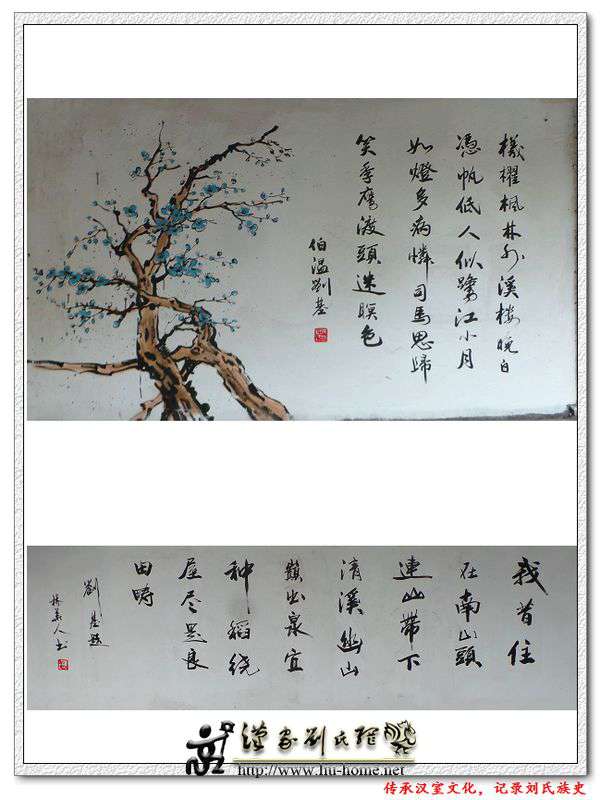 檥櫂楓林外溪橋晚自
憑帆低人似鷺江小月
如燈多病憐司馬思歸
笑季鷹渡頭迷暝色
伯温劉基
我昔住
在南山頭
連山帶下
清溪幽山
巔出泉宜
種稻繞
屋盡是良
田疇
劉基題
林美人书
漢家劉氏
http://www.liu-home.net
传承汉室文化，记录刘氏族史